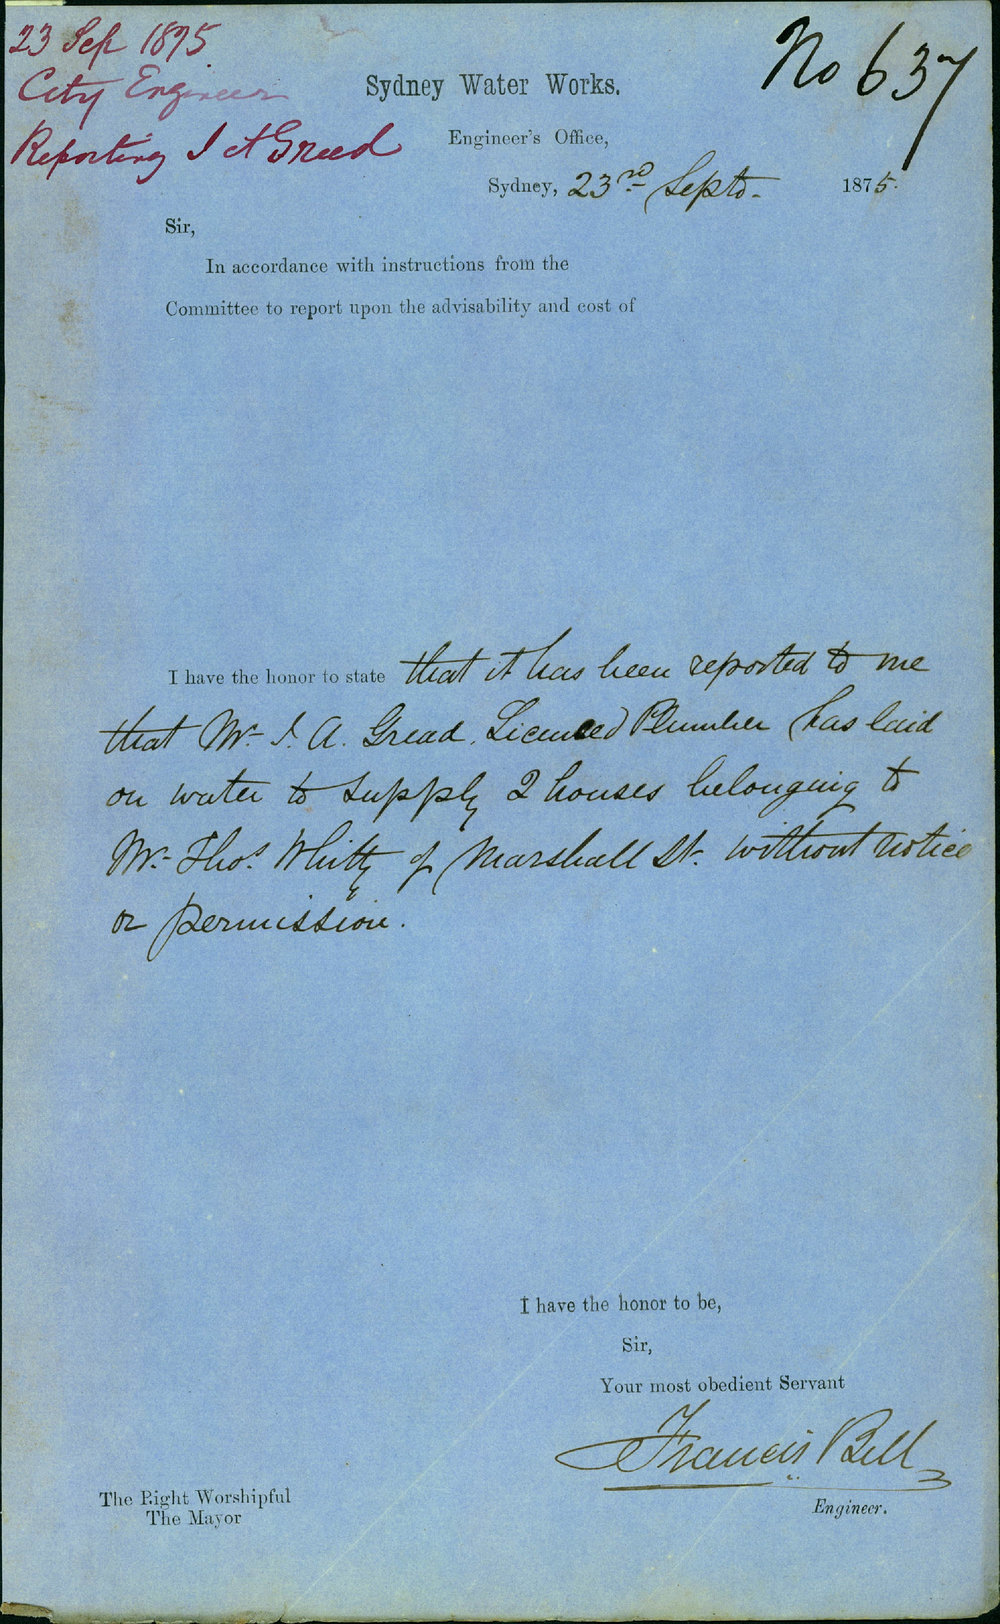 23 Sep 1875
City Engineer
Reporting J A Gread
No 637
Sydney Water Works.
Engineer's Office,
Sydney, 23rd Septr. 1875.
Sir,
In accordance with instructions from the
Committee to report upon the advisability and cost of
I have the honor to state that it has been reported to me
that Mr. J. A. Gread, Licensed Plumber has laid
on water to supply 2 houses belonging to
Mr. Thos. Whitty of Marshall St. without notice
or permission.
I have the honor to be,
Sir,
Your most obedient Servant
Francis Bell
Engineer.
The Right Worshipful
The Mayor